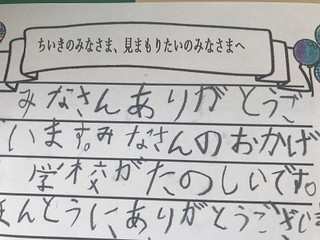 ちいきのみなさま、見まもりたいのみなさまへ
みなさんありがとうご
います。みなさんのおかげ
学校がたのしいです。
ほんとうにありがとうござい